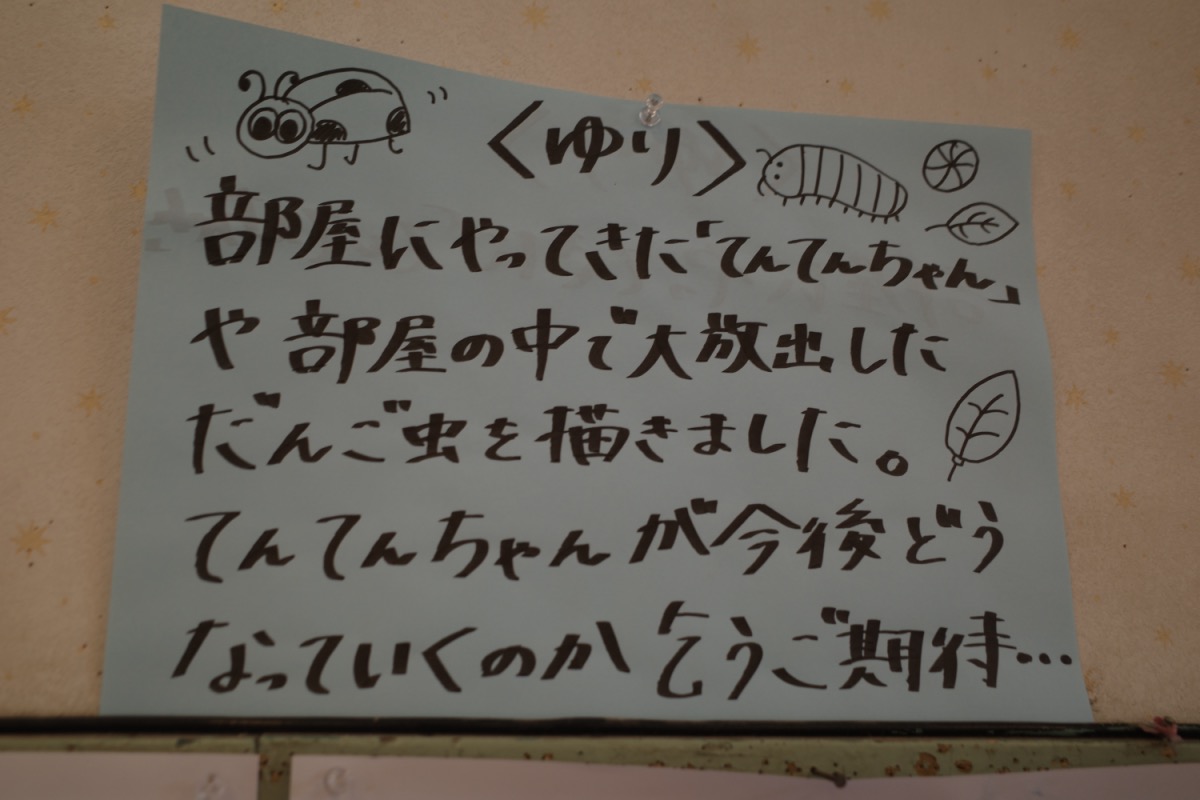 〈ゆり〉
部屋にやってきた「てんてんちゃん」
や部屋の中で大放出した
だんご虫を描きました。
てんてんちゃんが今後どう
なっていくのか乞うご期待…